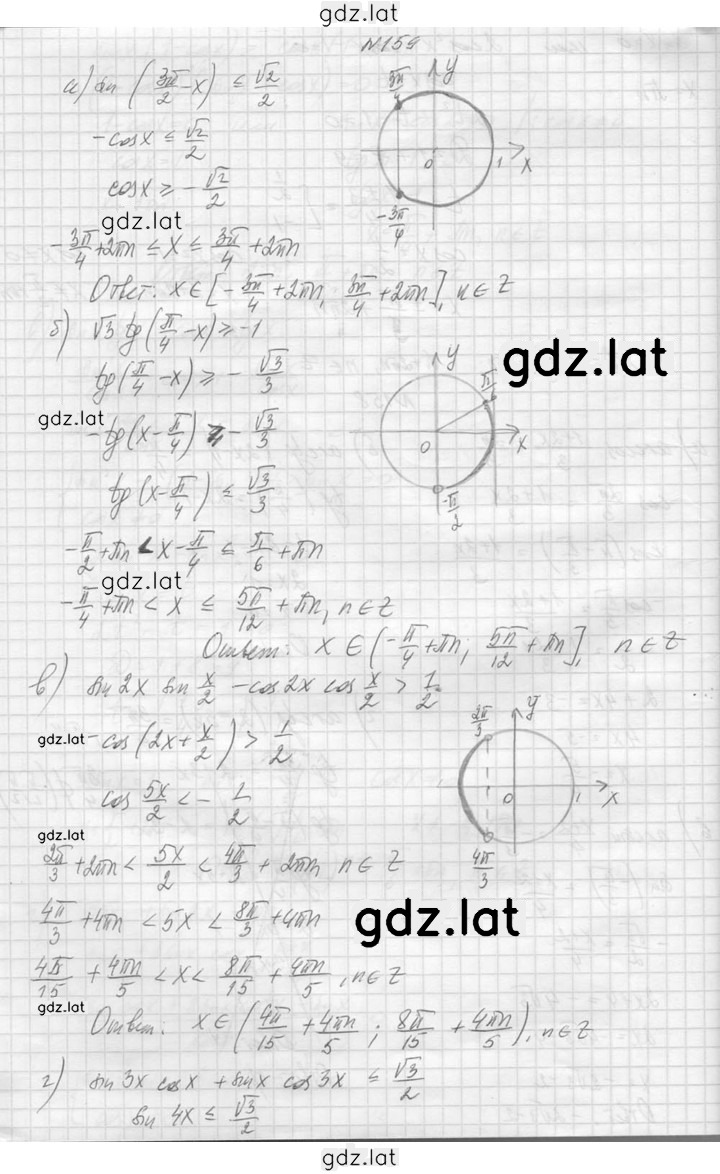 gdz.lat
N159
а) sin (3π/2 - x) ≤ √2/2
-cosx ≤ √2/2
cosx ≥ -√2/2
gdz.lat
-3π/4 + 2πn ≤ x ≤ 3π/4 + 2πn
Ответ: x ∈ [-3π/4 + 2πn, 3π/4 + 2πn], n ∈ Z
3π/4
y
0
1
x
-3π/4
б) √3 tg(π/4 - x) ≥ -1
tg(π/4 - x) ≥ - √3/3
gdz.lat
gdz.lat
-tg(x - π/4) ≥ - √3/3
tg(x - π/4) ≤ √3/3
-π/2 + πn < x - π/4 ≤ π/6 + πn
gdz.lat
-π/4 + πn < x ≤ 5π/12 + πn, n ∈ Z
Ответ: x ∈ (-π/4 + πn; 5π/12 + πn], n ∈ Z
y
π/6
0
x
-π/2
в) sin2x sin x/2 - cos2x cos x/2 > 1/2
gdz.lat
-cos(2x + x/2) > 1/2
cos 5x/2 < - 1/2
gdz.lat
2π/3 + 2πn < 5x/2 < 4π/3 + 2πn, n ∈ Z
4π/3 + 4πn < 5x < 8π/3 + 4πn
gdz.lat
4π/15 + 4πn/5 < x < 8π/15 + 4πn/5, n ∈ Z
gdz.lat
Ответ: x ∈ (4π/15 + 4πn/5; 8π/15 + 4πn/5), n ∈ Z
2π/3
y
0
1
x
4π/3
г) sin3x cosx + sinx cos3x ≤ √3/2
sin 4x ≤ √3/2
gdz.lat